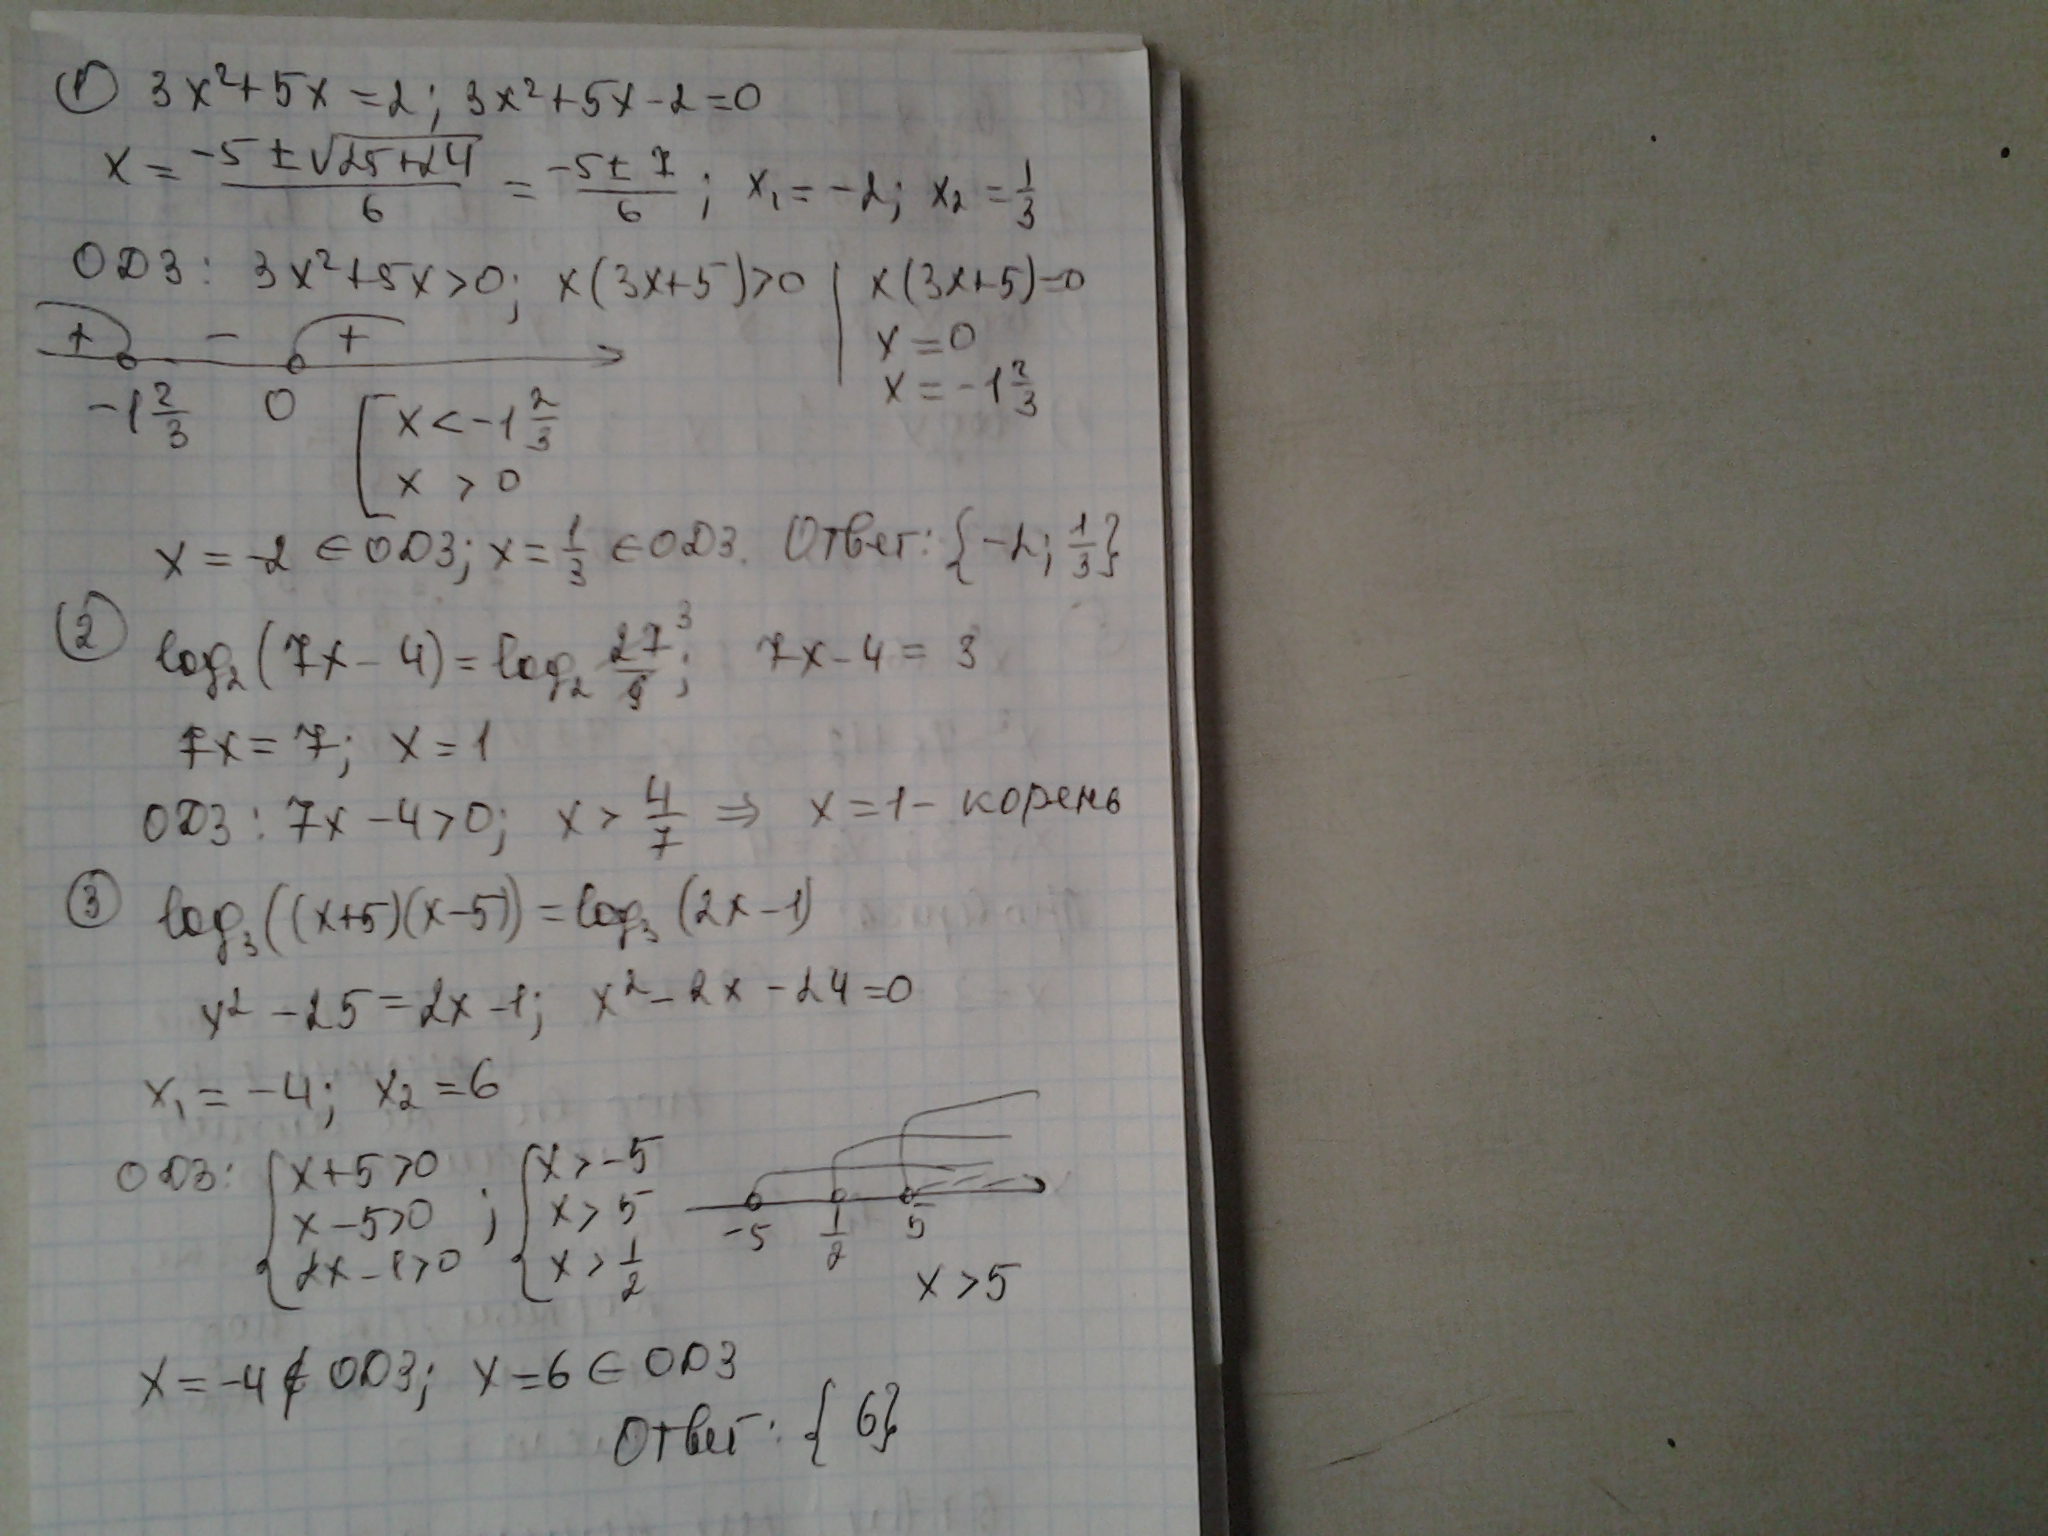 ① 3x²+5x=2; 3x²+5x-2=0
x = (-5±√(25+24))/6 = (-5±7)/6; x₁=-2; x₂=1/3
ОДЗ: 3x²+5x>0; x(3x+5)>0 | x(3x+5)=0
+ - + x=0
-1 2/3 0 x=-1 2/3
[ x<-1 2/3
x > 0
x=-2 ∈ ОДЗ; x=1/3 ∈ ОДЗ. Ответ: {-2; 1/3}
② log₂(7x-4)=log₂ 27/9 ³; 7x-4=3
7x=7; x=1
ОДЗ: 7x-4>0; x>4/7 ⇒ x=1- корень
③ log₃((x+5)(x-5))=log₃(2x-1)
x²-25=2x-1; x²-2x-24=0
x₁=-4; x₂=6
ОДЗ: { x+5>0 ; { x>-5
x-5>0 x>5
2x-1>0 x>1/2
-5 1/2 5
x>5
x=-4 ∉ ОДЗ; x=6 ∈ ОДЗ
Ответ: {6}